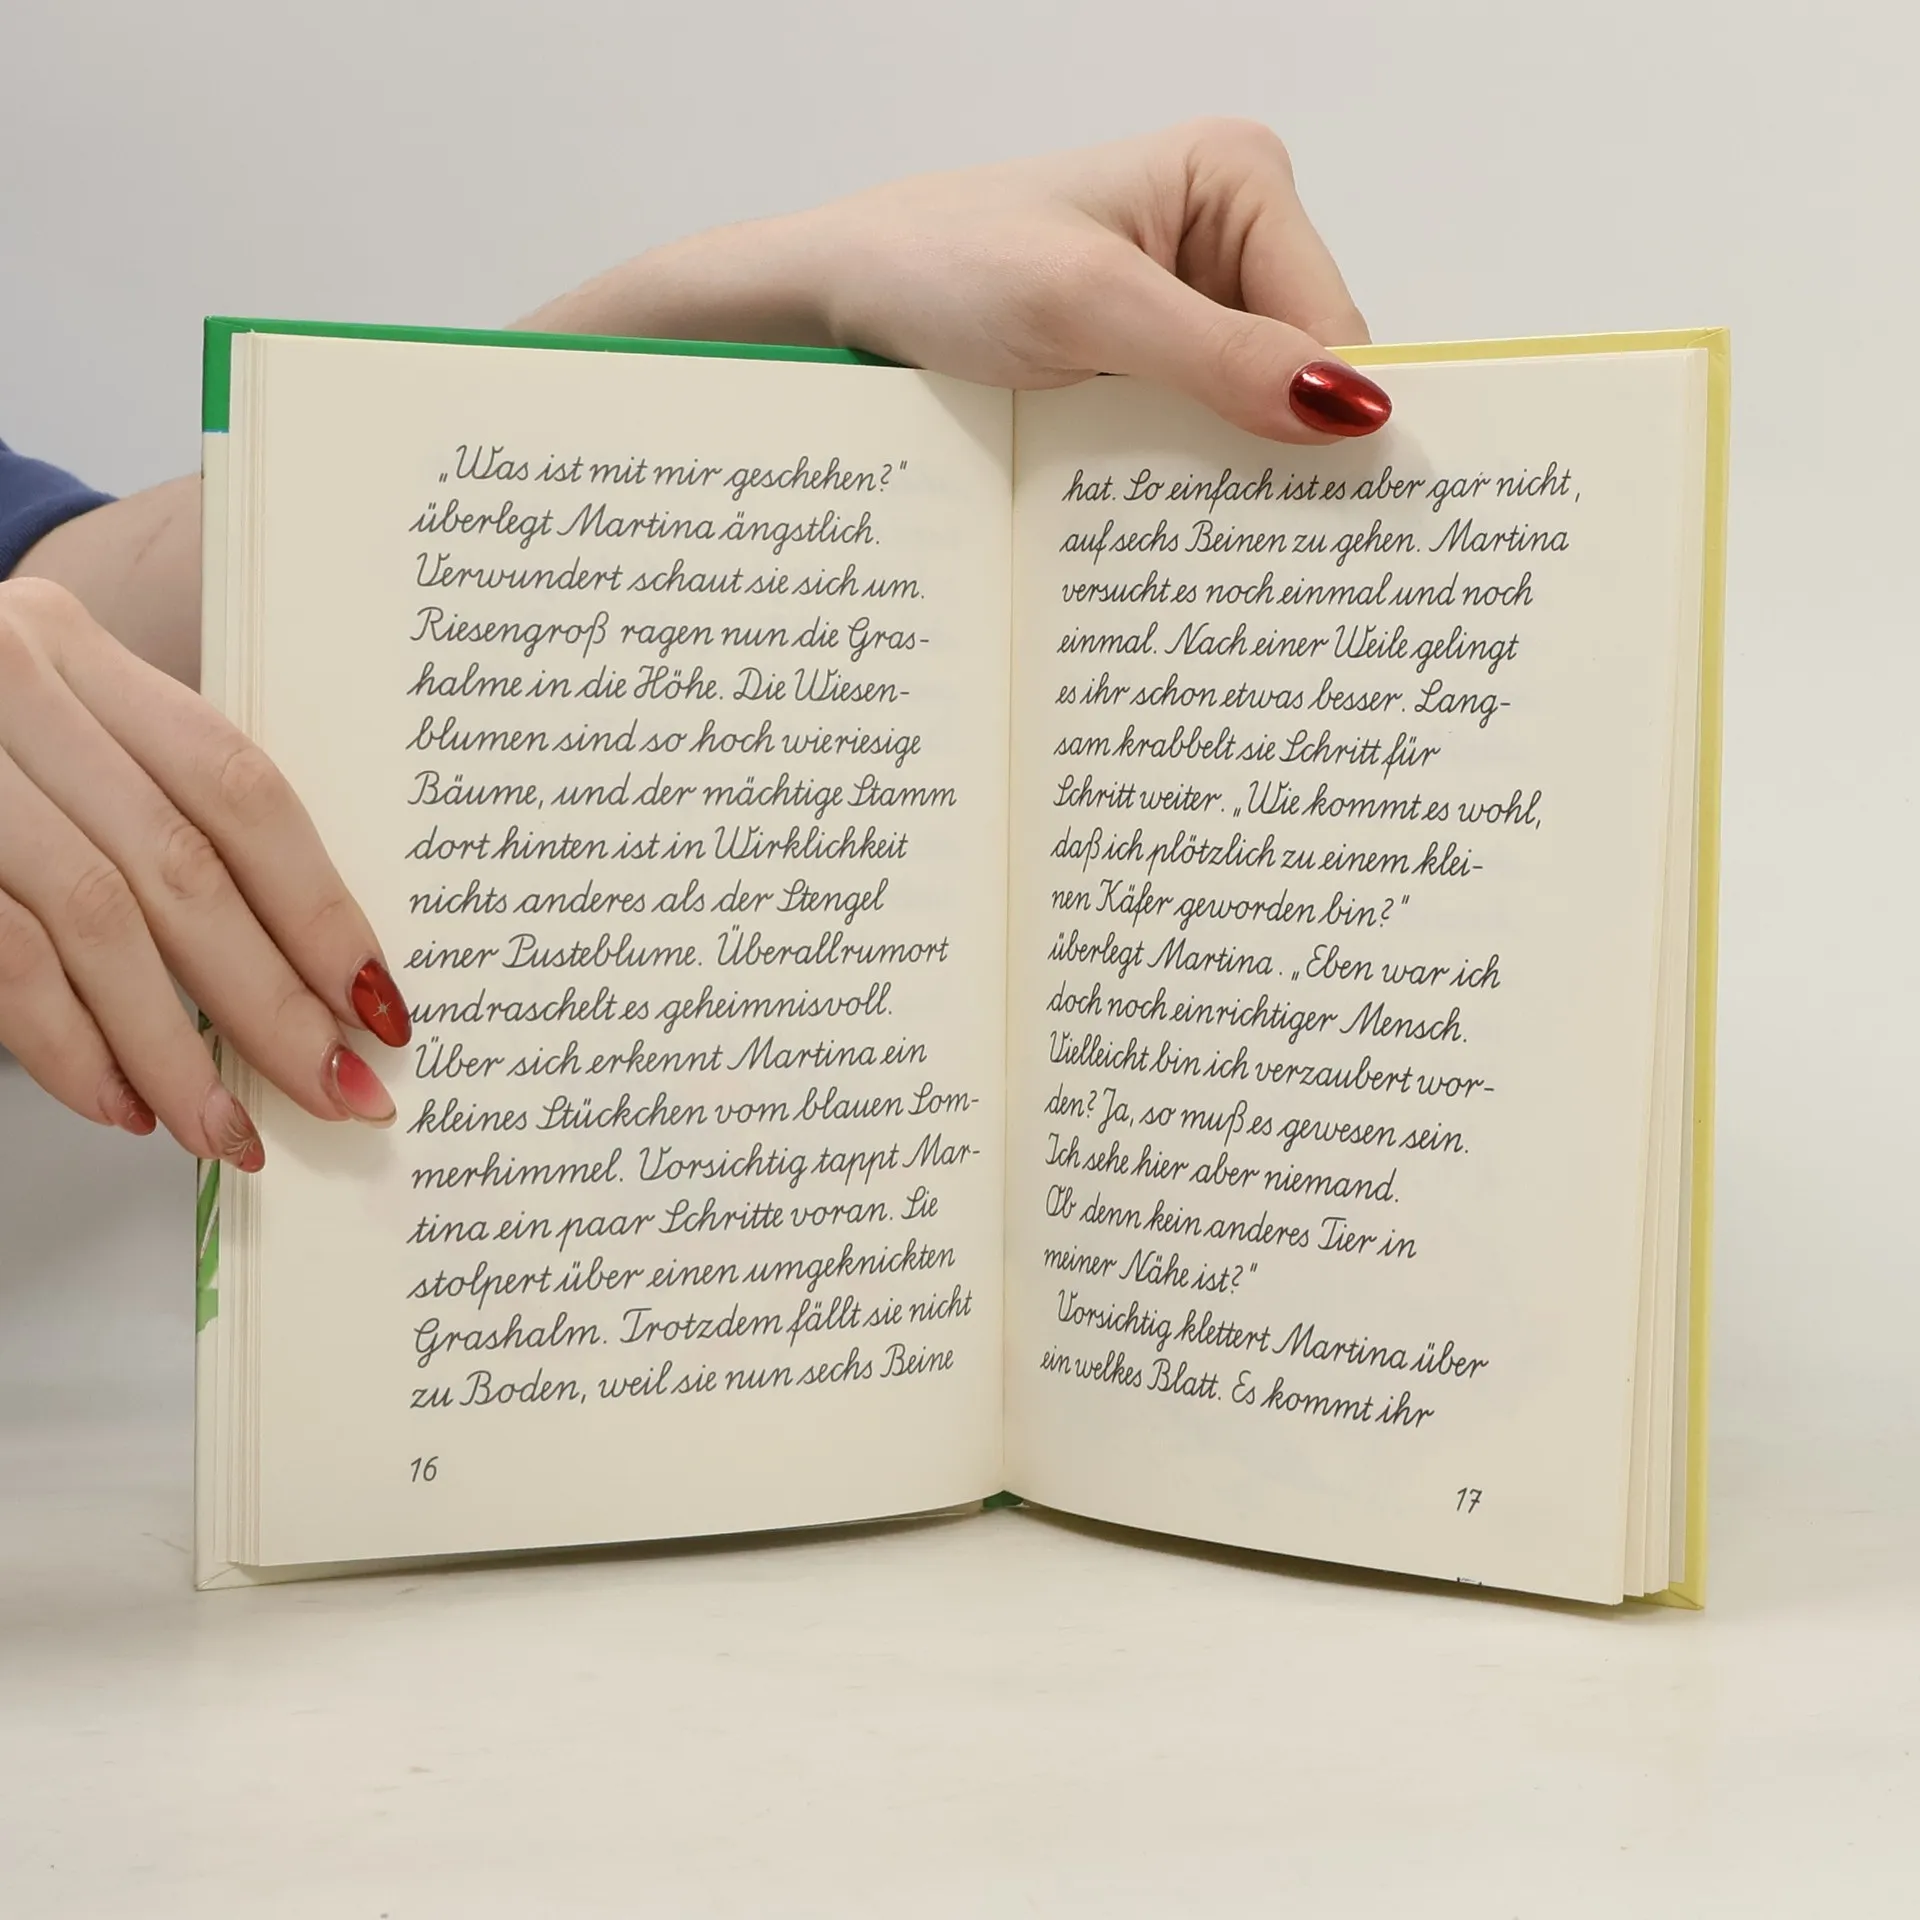 „Was ist mit mir geschehen?"
überlegt Martina ängstlich.
Verwundert schaut sie sich um.
Riesengroß ragen nun die Gras-
halme in die Höhe. Die Wiesen-
blumen sind so hoch wie riesige
Bäume, und der mächtige Stamm
dort hinten ist in Wirklichkeit
nichts anderes als der Stengel
einer Pusteblume. Überall rumort
und raschelt es geheimnisvoll.
Über sich erkennt Martina ein
kleines Stückchen vom blauen Som-
merhimmel. Vorsichtig tappt Mar-
tina ein paar Schritte voran. Sie
stolpert über einen umgeknickten
Grashalm. Trotzdem fällt sie nicht
zu Boden, weil sie nun sechs Beine
16
hat. So einfach ist es aber gar nicht,
auf sechs Beinen zu gehen. Martina
versucht es noch einmal und noch
einmal. Nach einer Weile gelingt
es ihr schon etwas besser. Lang-
sam krabbelt sie Schritt für
Schritt weiter. „Wie kommt es wohl,
daß ich plötzlich zu einem klei-
nen Käfer geworden bin?"
überlegt Martina. „Eben war ich
doch noch ein richtiger Mensch.
Vielleicht bin ich verzaubert wor-
den? Ja, so muß es gewesen sein.
Ich sehe hier aber niemand.
Ob denn kein anderes Tier in
meiner Nähe ist?"
Vorsichtig klettert Martina über
ein welkes Blatt. Es kommt ihr
17